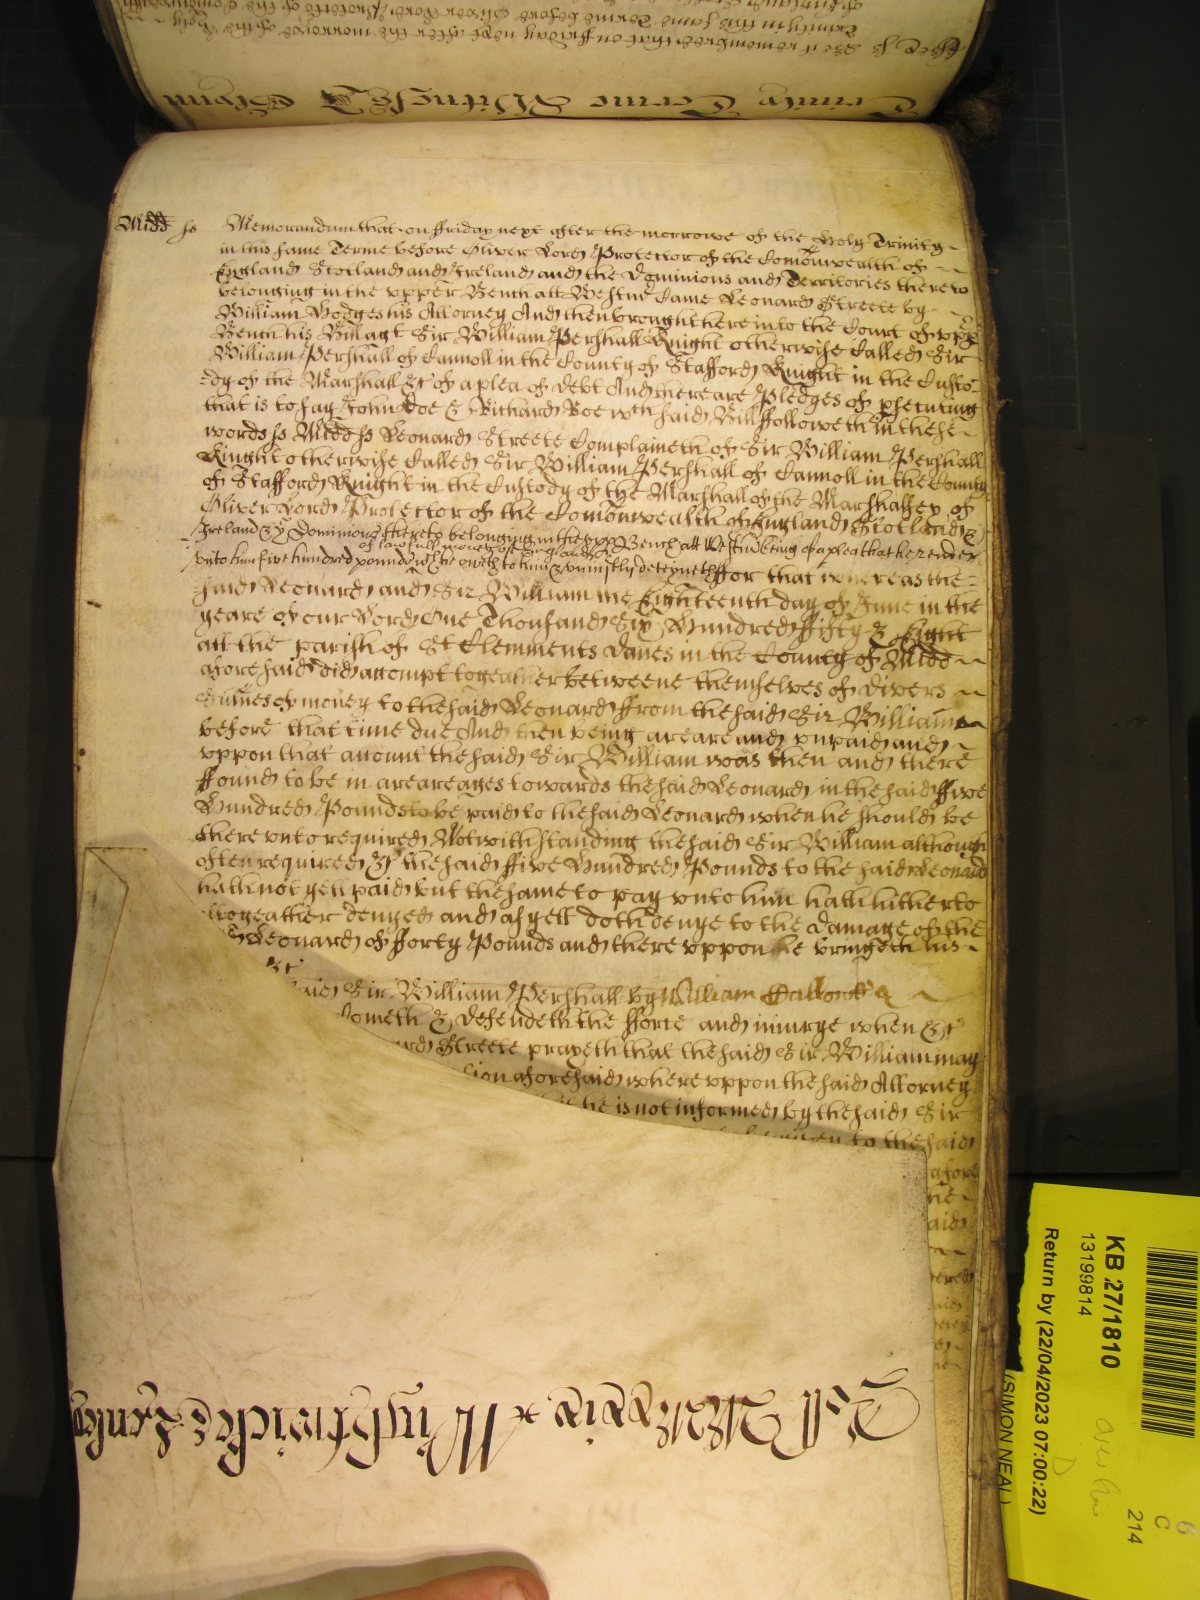 Trinity Terme Witnes J Glynn
Be it remembred that on ffriday next after the morrowe of the Holy
Trinity in this same Terme before Oliver Lord Protector of the Comonwealth
Midd ss Memorandum that on ffriday next after the morrowe of the Holy Trinity
in this same Terme before Oliver Lord Protector of the Comonwealth of
England Scotland and Ireland and the Dominions and Territories thereto
belonging in the upper Bench att Westmr Came Leonard Streete by
William Hodges his Attorney And then brought here into the Court of upp
Bench his Bill agt Sir William Pershall Knight otherwise Called Sir
William Pershall of Cannoll in the County of Stafford Knight in the Custo-
-dy of the Marshall &c of a plea of Debt And there are Pledges of psecuting
that is to say John Doe & Richard Roe wch said Bill ffolloweth in these
words ss Midd ss Leonard Streete Complaineth of Sir William Pershall
Knight otherwise Called Sir William Pershall of Cannoll in the County
of Stafford Knight in the Custody of the Marshall of the Marshalsey of
Oliver Lord Protector of the Comonwealth of England Scotland &
Ireland & ye Dominions thereto belonging in the upp Bench att Westm being of a plea that he render
of lawfull money of England
unto him five hundred pounds wch he oweth to him & uniustly deteyneth ffor that whereas the
said Leonard and Sir William the Eighteenth day of June in the
yeare of our Lord One Thousand Six Hundred ffifty & Eight
att the parish of St Clements Danes in the County of Midd
aforesaid did accompt togeather betweene themselves of divers
Sumes of money to the said Leonard ffrom the said Sir William
before that time due And then being areare and unpaid and
uppon that accountt the said Sir William was then and there
ffound to be in arearages towards the said Leonard in the said ffive
Hundred Pounds to be paid to the said Leonard when he should be
there unto required Notwithstanding the said Sir William although
often required &c the said ffive Hundred Pounds to the said Leonard
hath not yett paid but the same to pay unto him hath hitherto
altogeather denyed and as yett doth denye to the damage of the
sd Leonard of fforty Pounds and there uppon he bringeth his
&c
said Sir William Pershall by William
Cometh & defendeth the fforce and iniurye when &c
Streete prayeth that the said Sir William may
aforesaid where uppon the said Attorney
he is not informed by the said Sir
to the said
afore
the
aid
said
KB 27/1810
13199814
Return by (22/04/2023 07:00:22)
(SIMON NEAL)
214
C
6